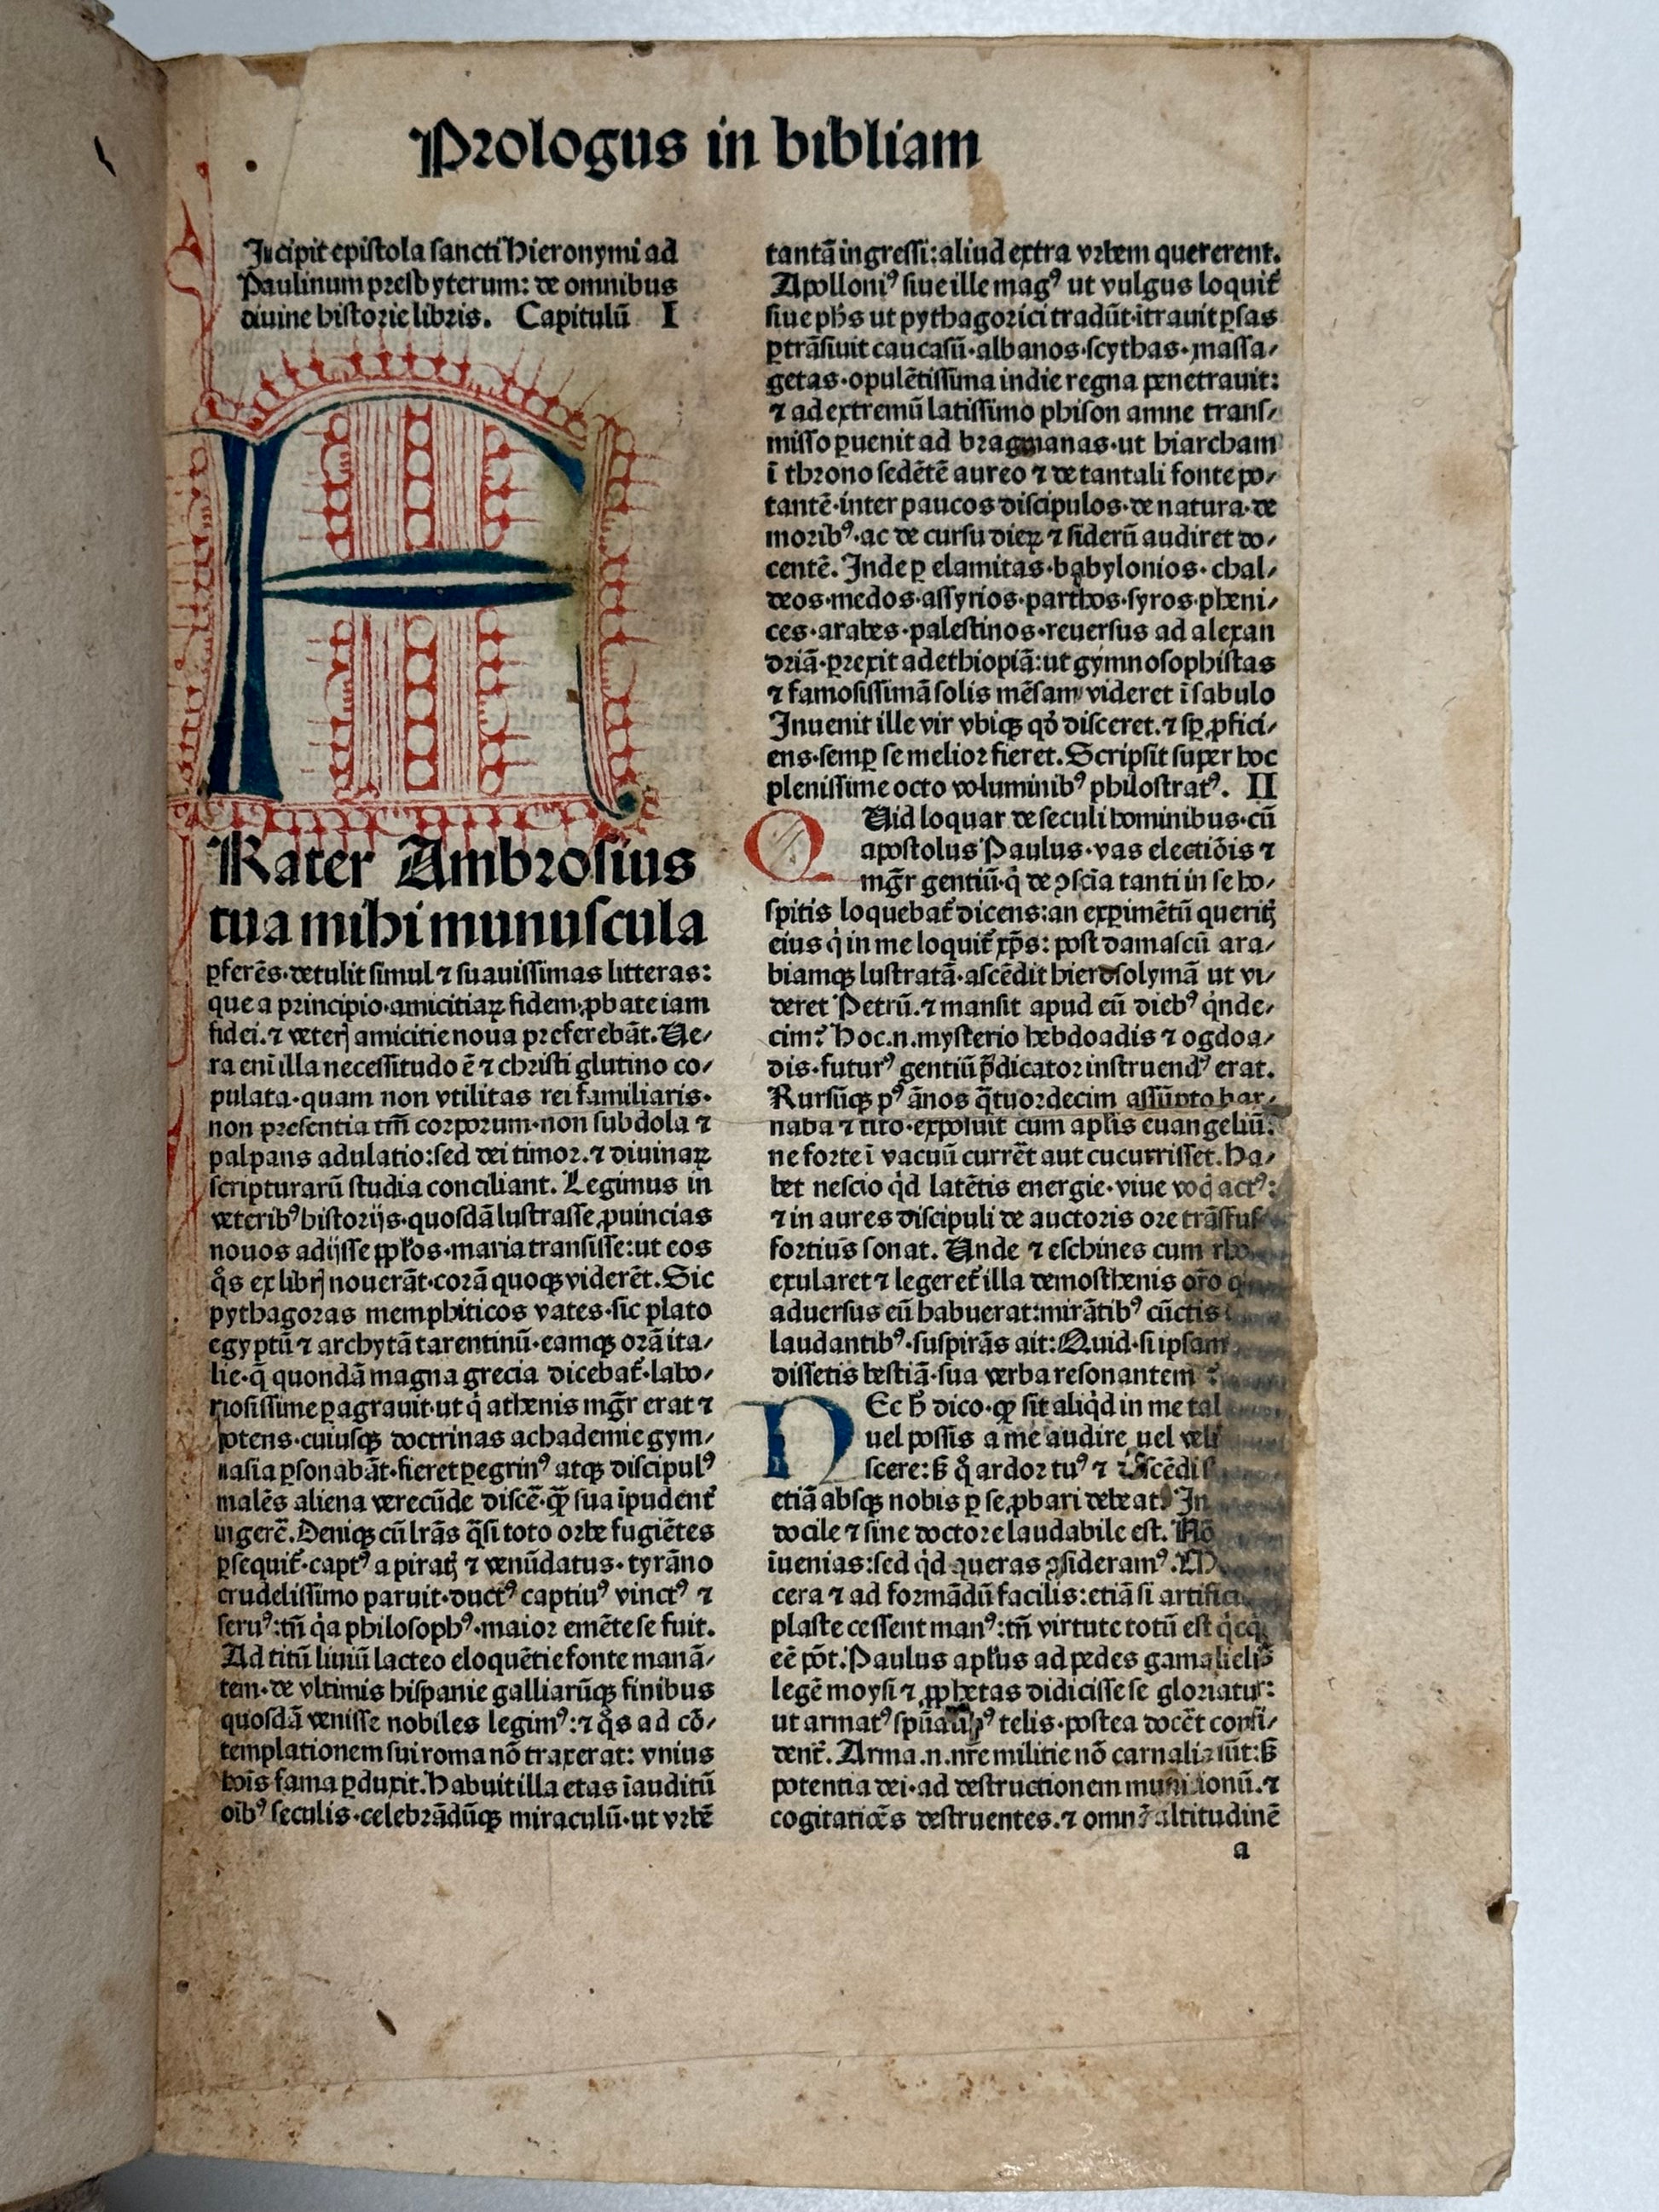 Prologus in bibliam
Incipit epistola sancti Hieronymi ad
Paulinum presbyterum: de omnibus
diuine historie libris. Capitulū I
F
Rater Ambrosius
tua mihi munuscula
ꝑferēs·detulit simul ⁊ suauissimas litteras:
que a principio·amicitiaꝝ fidem ꝓbate iam
fidei.⁊ veterꝭ amicitie noua preferebāt. Ue⸗
ra eni illa necessitudo ē ⁊ christi glutino co⸗
pulata·quam non vtilitas rei familiaris·
non presentia tm̄ corporum·non subdola ⁊
palpans adulatio:sed dei timor.⁊ diuinaꝝ
scripturarū studia conciliant. Legimus in
veteribꝰ historijs·quosdā lustrasse ꝓuincias
nouos adijsse pp̄los·maria transisse:ut eos
q̊s ex librꝭ nouerāt·corā quoqꝫ viderēt. Sic
pythagoras memphiticos vates·sic plato
egyptū ⁊ archytā tarentinū·eamqꝫ orā ita⸗
lie·q̄ quondā magna grecia dicebat᷑·labo⸗
riosissime ꝑagrauit·ut q̇ athenis mgr̄ erat ⁊
potens·cuiusqꝫ doctrinas achademie gym⸗
nasia ꝑsonabāt·fieret ꝑegrinꝰ atqꝫ discipulꝰ
malēs aliena verecūde discē·q̄ꝫ sua īpudent᷑
ingerē. Deniqꝫ cū lr̄as q̄si toto orbe fugiētes
ꝑsequit᷑·captꝰ a piratꝭ ⁊ venūdatus·tyrāno
crudelissimo paruit·ductꝰ captiuꝰ vinctꝰ ⁊
seruꝰ:tn̄ q̇a philosophꝰ·maior emēte se fuit.
Ad titū liuiū lacteo eloquētie fonte manā⸗
tem·de vltimis hispanie galliarūqꝫ finibus
quosdā venisse nobiles legimꝰ:⁊ q̊s ad cō⸗
templationem sui roma nō traxerat: vnius
hoīs fama ꝑduxit. Habuit illa etas īauditū
oībꝰ seculis·celebrādūqꝫ miraculū·ut vrbē
tantā ingressi:aliud extra vrbem quererent.
Apolloniꝰ siue ille magꝰ ut vulgus loquit᷑
siue ph̄s ut pythagorici tradūt·ītrauit ꝑsas
ꝑtrāsiuit caucasū·albanos·scythas·massa⸗
getas·opulētissima indie regna penetrauit:
⁊ ad extremū latissimo phison amne trans⸗
misso ꝑuenit ad bragmanas·ut hiarcham
ī throno sedētē aureo ⁊ de tantali fonte po⸗
tantē·inter paucos discipulos·de natura·de
moribꝰ·ac de cursu dieꝝ ⁊ siderū audiret do⸗
centē. Inde ꝑ elamitas·babylonios·chal⸗
deos·medos·assyrios·parthos·syros·pheni⸗
ces·arabes·palestinos·reuersus ad alexan
driā·ꝑrexit ad ethiopiā:ut gymnosophistas
⁊ famosissimā solis mēsam videret ī sabulo
Inuenit ille vir vbiqꝫ qd̊ disceret.⁊ sꝑ ꝓfici⸗
ens·semꝑ se melior fieret. Scripsit super hoc
plenissime octo voluminibꝰ philostratꝰ. II
QUid loquar de seculi hominibus·cū
apostolus Paulus·vas electiōis ⁊
mgr̄ gentiū·q̇ de ꝯscīa tanti in se ho⸗
spitis loquebat᷑ dicens:an exꝑimētū queritꝭ
eius q̇ in me loquit᷑ xp̄s: post damascū ara⸗
biamqꝫ lustratā·ascēdit hierosolymā ut vi⸗
deret Petrū.⁊ mansit apud eū diebꝰ q̇nde⸗
cim? Hoc.n.mysterio hebdoadis ⁊ ogdoa⸗
dis·futurꝰ gentiū p̄dicator instruendꝰ erat.
Rursūqꝫ pꝰ ānos q̄tuordecim assūpto bar⸗
naba ⁊ tito·exposuit cum apl̄is euangeliū:
ne forte ī vacuū currēt aut cucurrisset. Ha⸗
bet nescio q̇d latētis energie·viue voc̄ actꝰ:
⁊ in aures discipuli de auctoris ore trāsfus
fortius sonat. Unde ⁊ eschines cum rho
exularet ⁊ legeret᷑ illa demosthenis orō q
aduersus eū habuerat:mirātibꝰ cūctis
laudantibꝰ·suspirās ait: Quid·si ipsam
dissetis bestiā·sua verba resonantem?
NEc h̄ dico·ꝙ sit aliq̇d in me tal
uel possis a me audire uel veli
scere:s̄ q̊ ardor tuꝰ ⁊ discēdi
etiā absqꝫ nobis ꝑ se ꝓbari debeat. In
docile ⁊ sine doctore laudabile est. Nō
īuenias:sed q̇d queras ꝯsideramꝰ.
cera ⁊ ad formādū facilis:etiā si artifici
plaste cessent manꝰ:tn̄ virtute totū est q̇cq̇
eē pōt. Paulus apl̄us ad pedes gamalielis
legē moysi ⁊ ꝓphetas didicisse se gloriatur:
ut armatꝰ telis·postea docēt confi⸗
dent᷑. Arma.n.nr̄e militie nō carnalia sūt:s̄
potentia dei·ad destructionem munitionū.⁊
cogitatiōes destruentes.⁊ omnē altitudinē
a